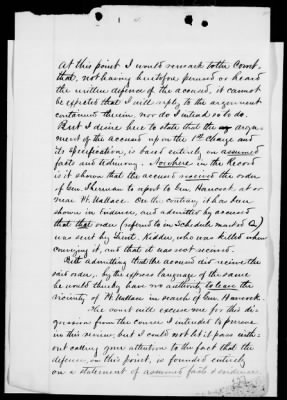 At this point I would remark to the Court
that, not having heretofore perused or heard
the written defence of the accused, it cannot
be expected that I will reply to the argument
contained therein, nor do I intend so to do.
But I desire here to state that the argu-
ment of the accused upon the 1st charge and
its specification, is based entirely on assumed
facts and testimony. Nowhere in the Record
is it shown that the accused received the order
of Gen. Sherman to report to Gen. Hancock, at or
near Ft. Wallace. On the contrary it has been
shown in evidence, and admitted by accused
that that order (referred to in Schedule marked
was sent by Lieut. Kidder, who was killed when
conveying it, and that it was not received.
But admitting that the accused did receive the
said order, by the express language of the same
he would thereby have no authority to leave the
vicinity of Ft Wallace in search of Gen. Hancock.
The court will excuse me for this di-
gression from the course I intended to pursue
in this review, but I could not let it pass with-
out calling your attention to the fact that the
defence, on this point, is founded entirely
on a statement of assumed facts & evidence.